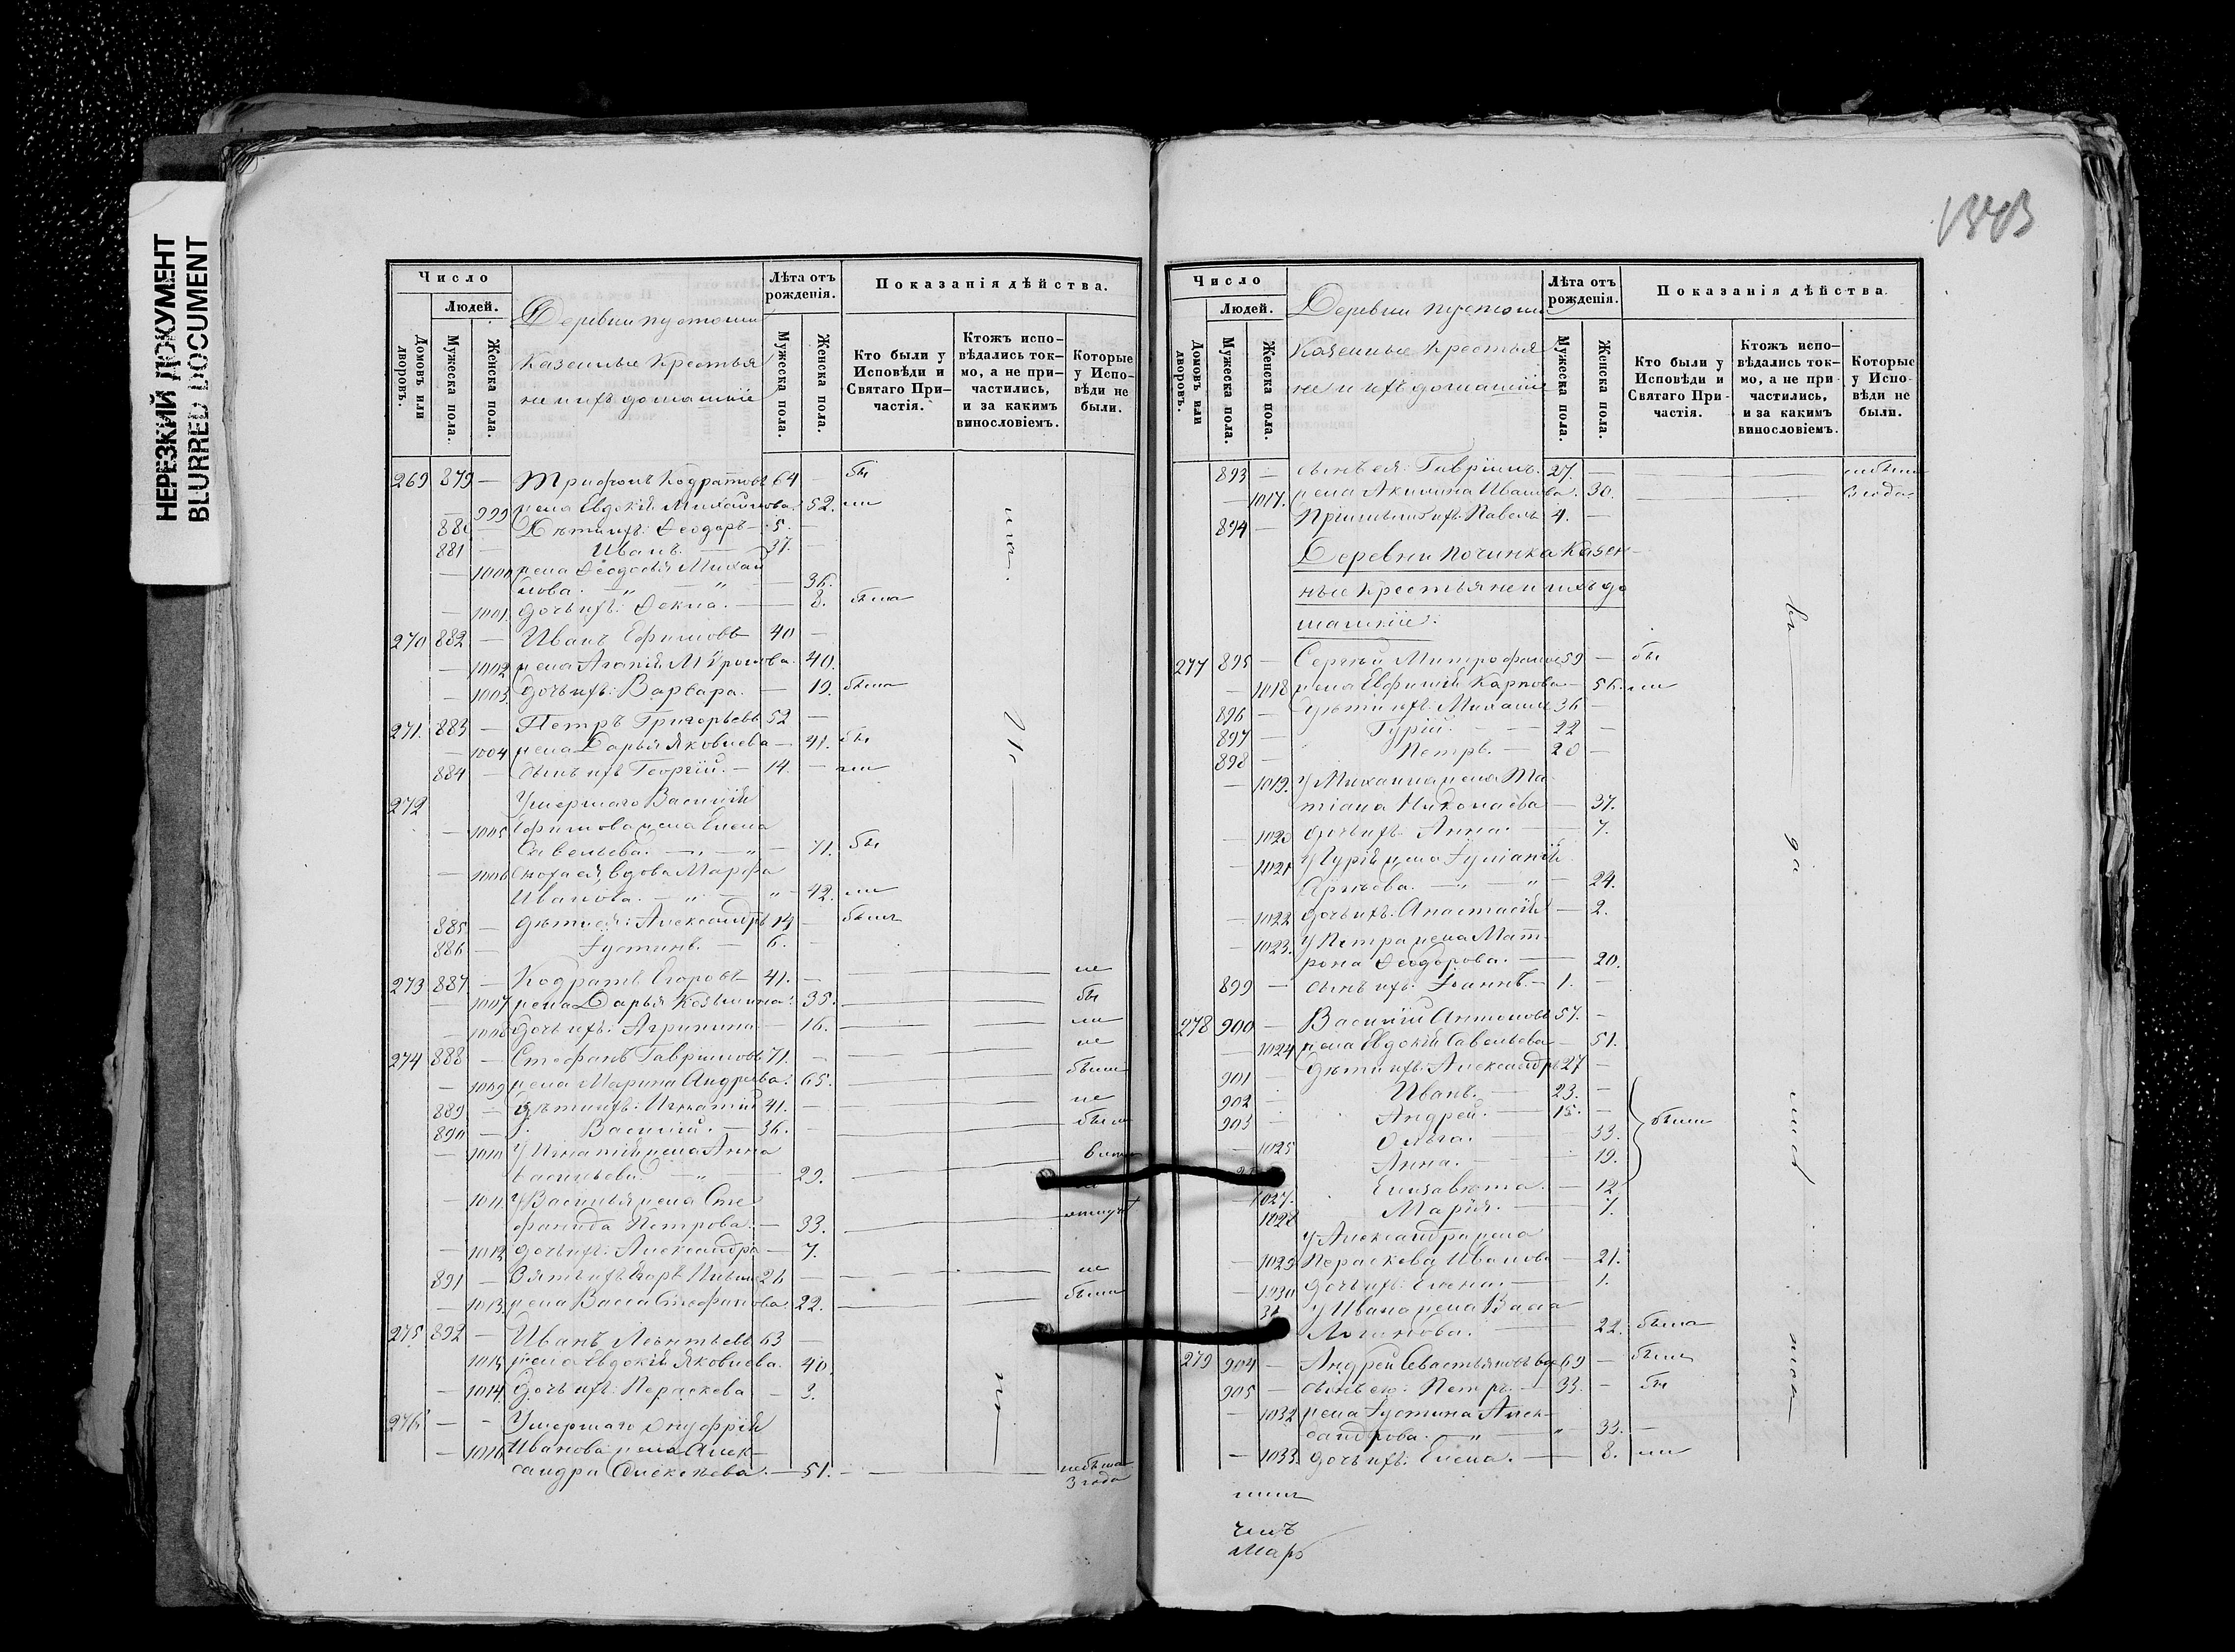 НЕРЕЗКИЙ ДОКУМЕНТ
BLURRED DOCUMENT
Число
Людей.
Домовъ или дворовъ.
Мужеска пола.
Женска пола.
Деревни пустоши
Казенные Крестья
не и ихъ домашніе
Лѣта отъ рожденія.
Мужеска пола.
Женска пола.
Показанія дѣйства.
Кто были у Исповѣди и Святаго При-частія.
Ктожъ испо-вѣдались ток-мо, а не при-частились, и за какимъ винословіемъ.
Которые у Испо-вѣди не были.
269 879 — Трифонъ Кодратовъ 64 — бы
— 999 жена Евдокія Михайлова. 52. ли
880 — Дѣти ихъ: Ѳеодоръ — 5. —
881 — Иванъ. — 37. —
— 1000 жена Ѳеодосія Михай
лова. — „ — „ — 36.
— 1001. дочь ихъ: Ѳекла. — 8. была
270 882 — Иванъ Ефимовъ 40 —
— 1002 жена Агапія Миронова. 40.
— 1003. дочь ихъ: Варвара. — 19. была
271. 883 — Петръ Григорьевъ 52 —
— 1004 жена Дарья Яковлева — 41. бы
884 — сынъ ихъ Георгій. — 14. — ли
272 Умершаго Василія
— 1005 Ефимова жена Елена
Савельева. — „ — „ — 71. бы
— 1006 сноха ея, вдова Марѳа
Иванова. — „ — „ — 42. ли
885 — дѣти ея: Александръ 14 — были
886 — Іустинъ. — 6. —
273 887 — Кодратъ Егоровъ 41. — не
1007 жена Дарья Козьмина. 35. бы
— 1008 дочь ихъ: Агрипина — 16. ли
274 888 — Стефанъ Гавриловъ 71. — не
— 1009 жена Марина Андреева. 65. были
889 — дѣти ихъ: Игнатій 41. — не
890 — Василій. — 36. — были
— 1010 У Игнатія жена Анна
Васильева. „ — 29.
— 1011. У Василья жена Сте
фанида Петрова. — 33.
— 1012 дочь ихъ: Александра — 7.
891 — Зять ихъ 26 — не
— 1013 жена Васса Стефанова. 22. были
275. 892 — Иванъ Леонтьевъ 63 —
1015 жена Евдокія Яковлева. 40.
— 1014. дочь ихъ: Параскева — 3.
276 — — Умершаго Онуфрія
— 1016 Иванова жена Алек—
сандра Алексѣева. — 51. — не была
3 года
1343
Число
Людей.
Домовъ или дворовъ.
Мужеска пола.
Женска пола.
Деревни пустоши
Казенные Крестья
не и ихъ домашніе
Лѣта отъ рожденія.
Мужеска пола.
Женска пола.
Показанія дѣйства.
Кто были у Исповѣди и Святаго При-частія.
Ктожъ испо-вѣдались ток-мо, а не при частились, и за какимъ винословіемъ.
Которые у Испо-вѣди не были.
893 — сынъ ея: Гавріилъ. 27. — не были
— 1017. жена Акилина Иванова. 30. 3 года
894 — Павелъ 4. —
Деревни Починка Казен—
ные Крестьяне и ихъ до
машніе:
277 895 — Сергѣй Митрофановъ 59 — бы
— 1018 жена Евфимія Карпова — 56. ли
896 — Дѣти ихъ. Михаилъ 36 —
897 — Гурій. — 22 —
898 — Петръ. — 20 —
— 1019. У Михаила жена Та
тіана Николаева — 37.
— 1020 дочь ихъ. Анна. — 7.
— 1021 У Гурія жена Іуліанія
— „ — „ — 24.
— 1022 дочь ихъ: Анастасія — 2.
— 1023. У Петра жена Мат
рона Ѳеодорова. — 20.
899 — сынъ ихъ: Іоаннъ. — 1. —
278 900 — Василій Антоновъ 57. —
— 1024 жена Евдокія Савельева — 51.
901 — Дѣти ихъ: Александръ 27 —
902 — Иванъ. — 23. —
903 — Андрей. — 15. — были
— 1025 Ольга. — 33.
Анна. — 19.
1027. Елизавета. — 12
1028 Марія. — 7.
У Александра жена
— 1029 Параскева Иванова — 21.
— 1030 дочь ихъ: Елена. — 1.
31 У Ивана жена Васса
Логинова. — 22. была
279 904 — Андрей Севастьяновъ 69 — были
905 — сынъ его: Петръ. — 33. — бы
— 1032 жена Іустина Алек—
сандрова. — „ — „ — 33. —
— 1033. дочь ихъ: Елена. — 8. ли